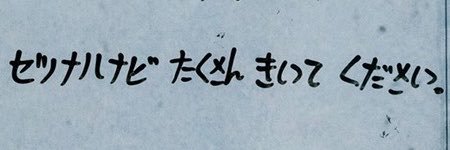 ゼツナハナビ たくさん きいて ください。